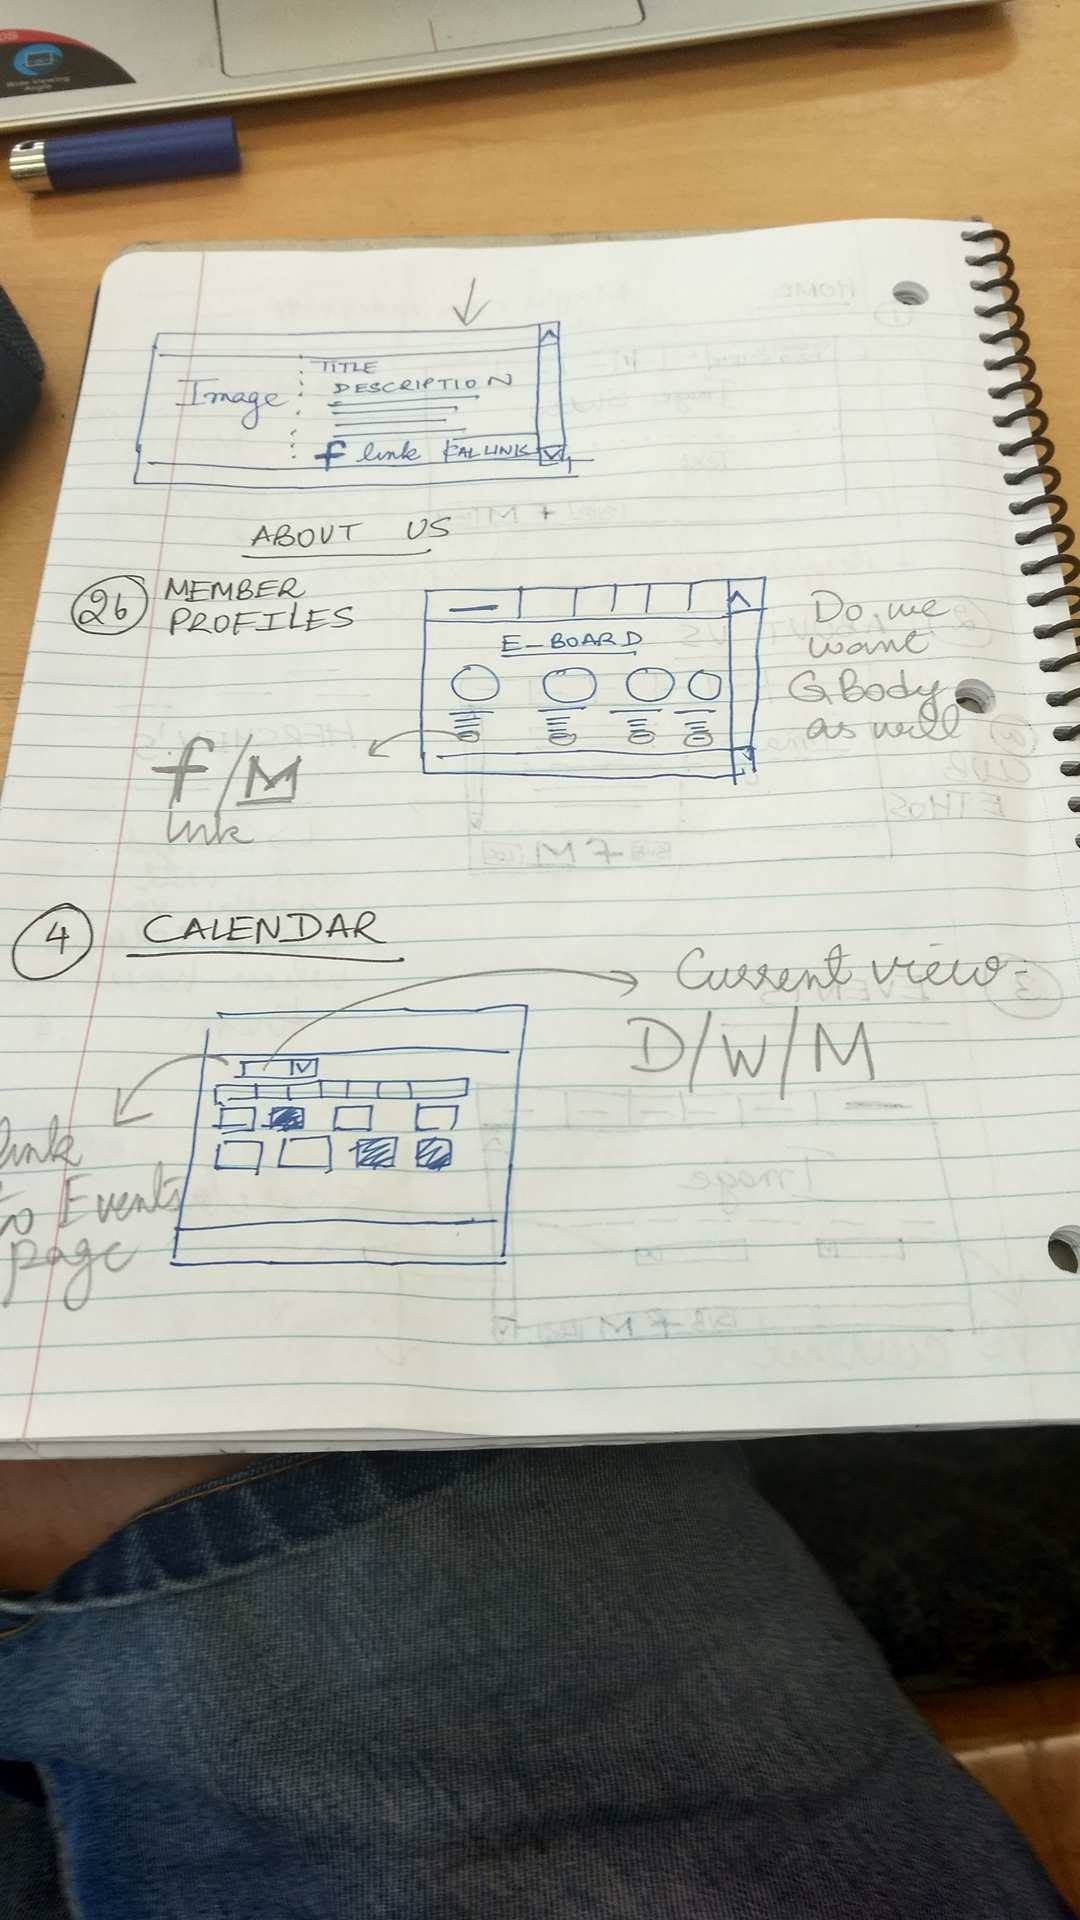 Wide Viewing
Angle
Image
TITLE
DESCRIPTION
f link
LINK
ABOUT US
2b
MEMBER
PROFILES
E-BOARD
Do we
want
G Body
as well
f/M
link
4
CALENDAR
Current view:
D/W/M
link
to Events
page